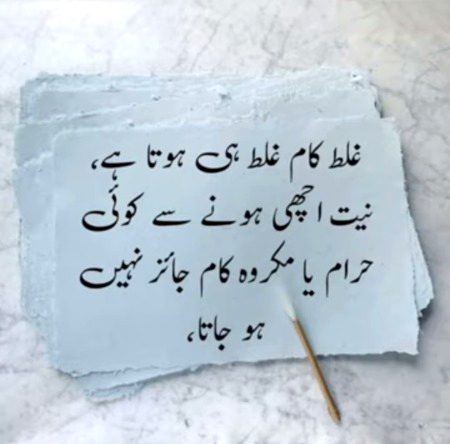 غلط کام غلط ہی ہوتا ہے،
نیت اچھی ہونے سے کوئی
حرام یا مکروہ کام جائز نہیں
ہو جاتا،